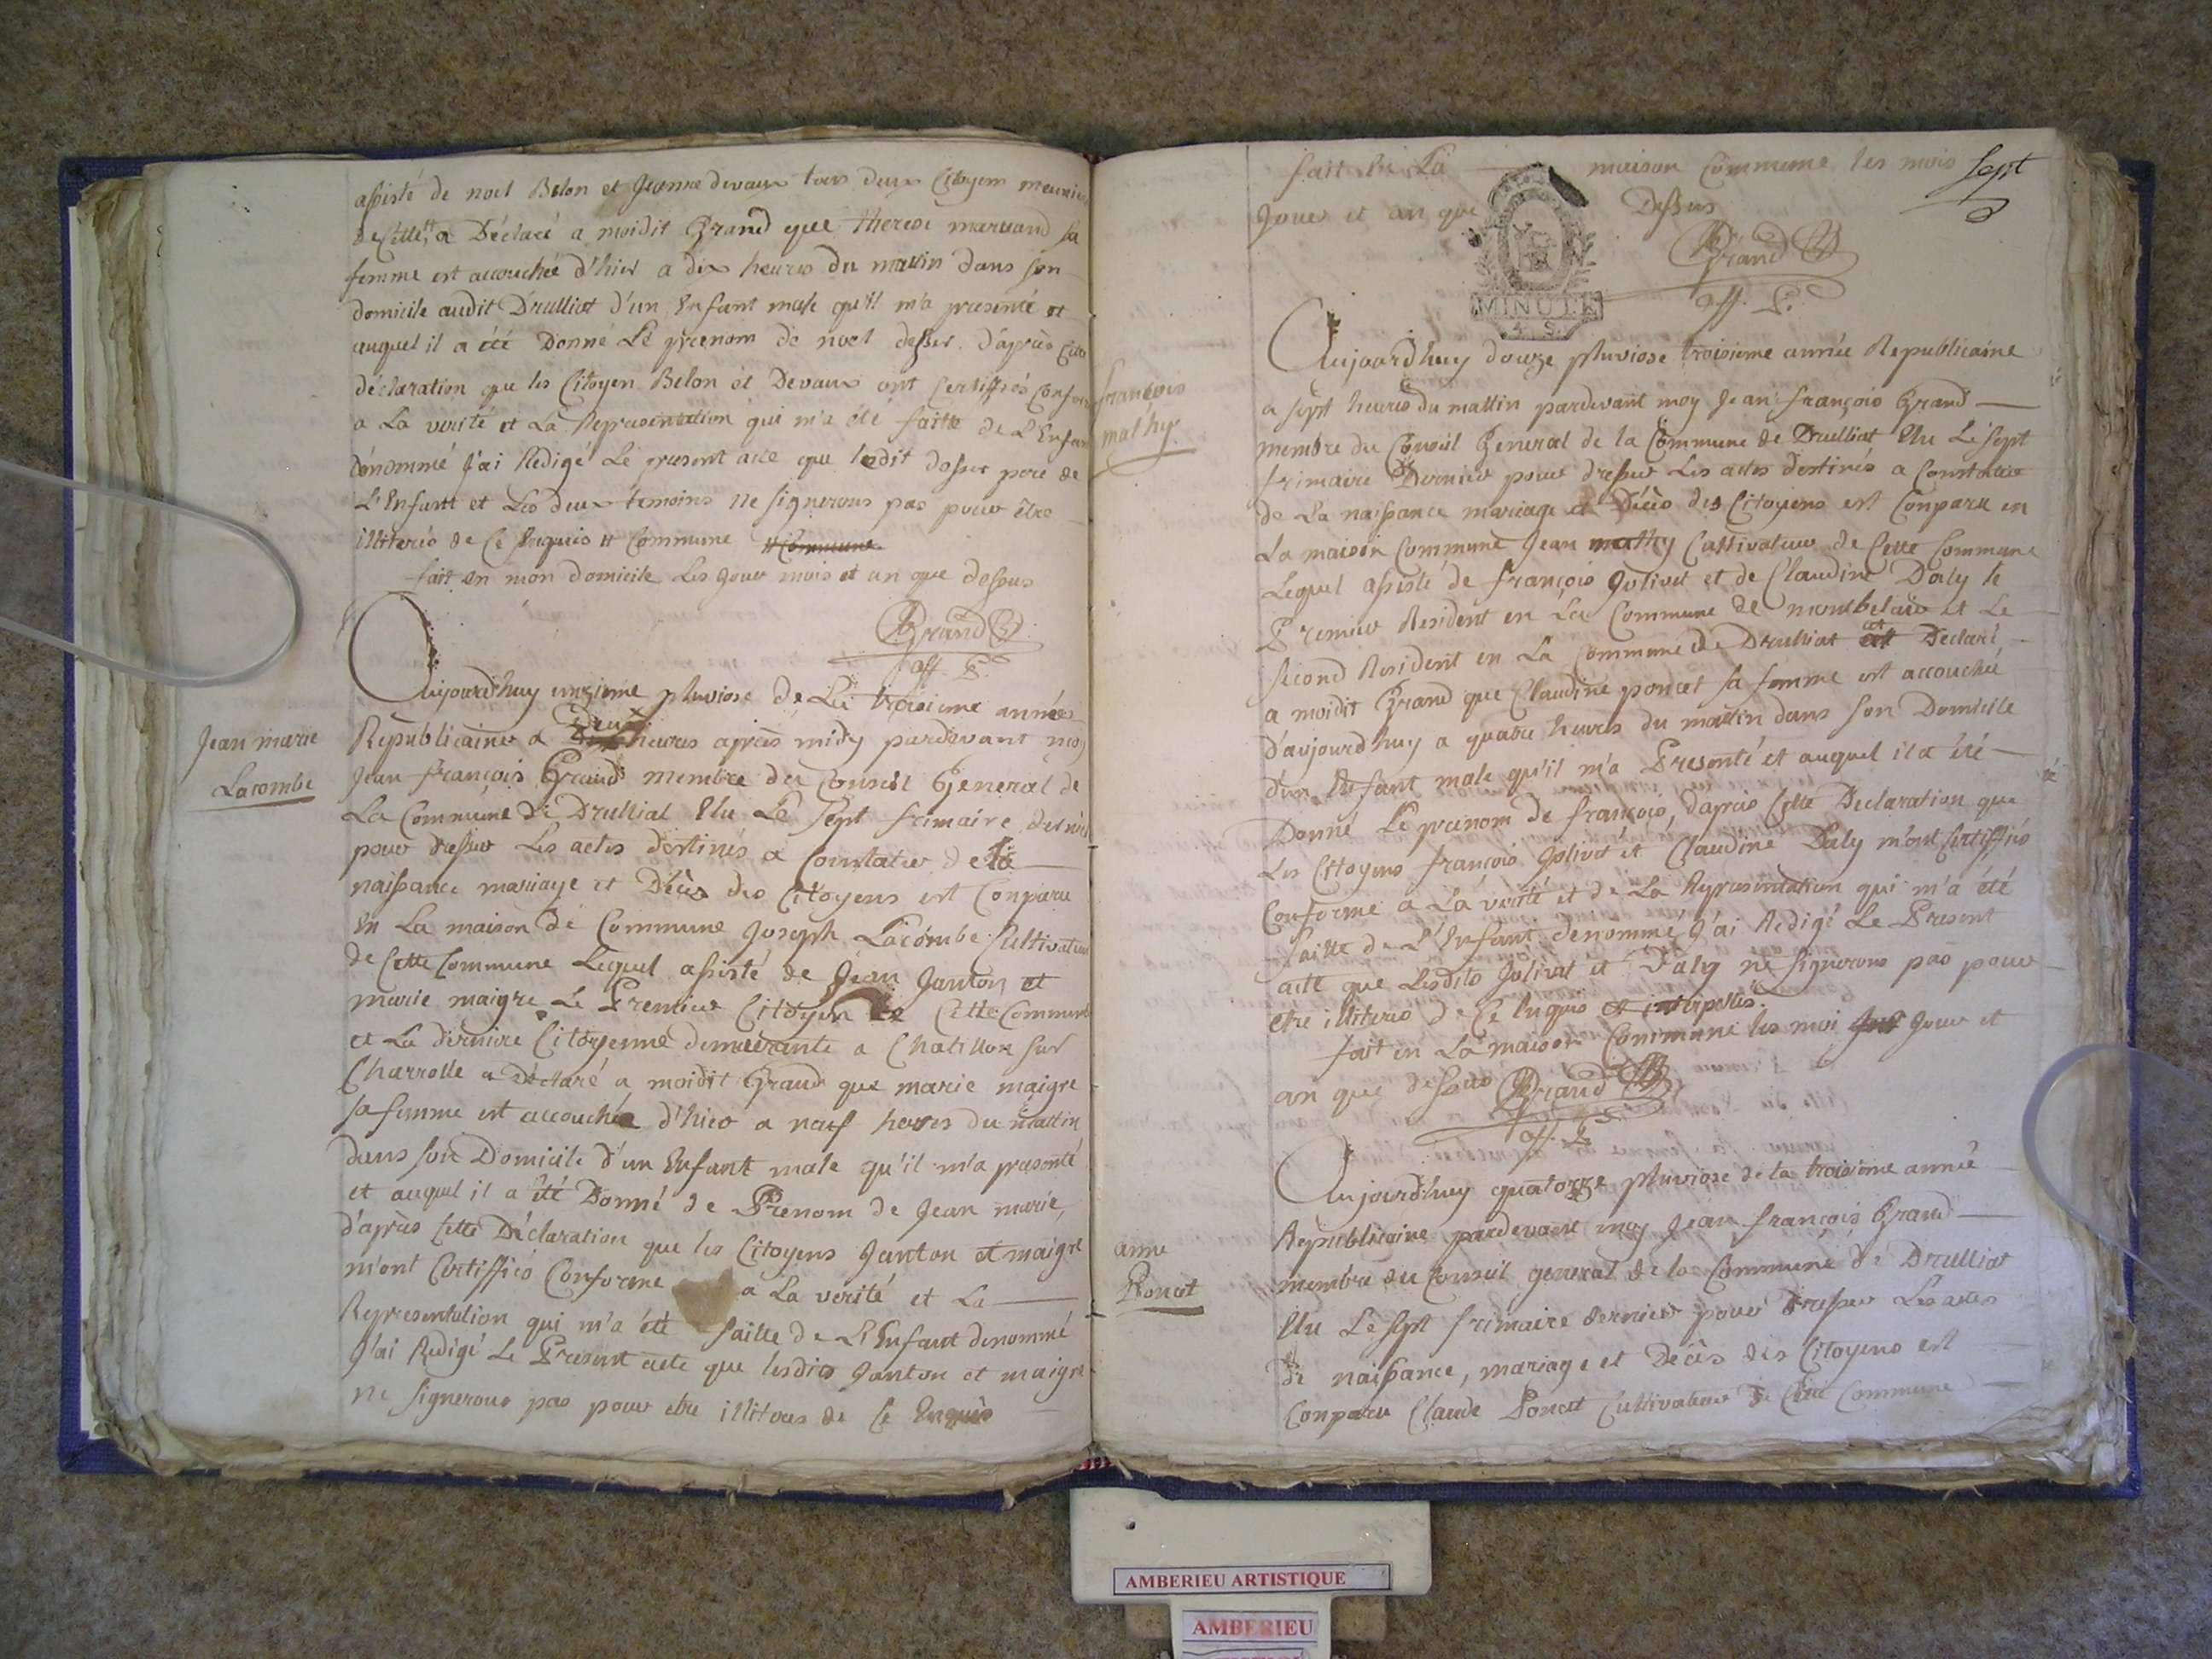 assisté de noel Belon et Jeanne devaux tous deux Citoyens meunier
de Cette, a Déclaré a moidit Grand que therese marvand sa
femme est accouchée d'hier a dix heures du mattin dans son
domicile audit Drulliat d'un Enfant male qu'il m'a presenté et
auquel il a été Donné Le prenom de noel desser. d'après Cette
déclaration que les Citoyen Belon et Devaux ont Certiffiés Conforme
a La verité et La Representation qui m'a été faitte de L'Enfant
dénommé J'ai Redigé Le present acte que ledit desser pere de
L'Enfant et Les deux temoins Ne signerons pas pour être
illiterés de Ce Enquis # Commune # Commune
fait en mon domicile Les Jour mois et an que dessus
Grand
off. P.
Jean marie
Lacombe
Aujourd'huy onzieme pluviose de La troisieme année
Republicaine a Deux heures après midy pardevant moy
Jean françois Grand membre du Conseil General de
La Commune de Drulliat Elu Le Sept frimaire dernier
pour dresser Les actes destinés a Constater de la
naissance mariage et Décès des Citoyens est Comparu
En La maison de Commune Joseph Lacombe Cultivateur
de Cette Commune Lequel assisté de Jean Janton et
marie maigre Le Premier Citoyen de Cette Commune
et La derniere Citoyenne demeurante a Chatillon sur
Charrolle a Déclaré a moidit Grand que marie maigre
sa femme est accouchée d'hier a neuf heures du mattin
dans son Domicile d'un Enfant male qu'il m'a presenté
et auquel il a été Donné de Prenom de Jean marie,
d'après Cette Déclaration que les Citoyens Janton et maigre
m'ont Certiffiés Conforme a La verité et La
Representation qui m'a été faitte de L'Enfant denommé
J'ai Redigé Le Present acte que lesdits Janton et maigre
ne signerons pas pour etre illiterés de Ce Enquis
fait En La maison Commune les mois
Jour et an que Dessus
Sept
MINUTE
4. S.
Grand
off. P.
françois
mathy
Aujourd'huy douze pluviose troisieme année Republicaine
a sept heures du mattin pardevant moy Jean françois Grand
membre du Conseil General de la Commune de Drulliat Elu Le Sept
frimaire Dernier pour dresser Les actes destinés a Constater
de La naissance mariage et Décès des Citoyens est Conparu en
La maison Commune Jean mathy Cultivateur de Cette Commune
Lequel assisté de françois Jolivet et de Claudine Daly le
Premier Resident en La Commune de monbelair et Le
Second Resident en La Commune de Drulliat a Declaré
a moidit Grand que Claudine poncet sa femme est accouchée
d'aujourd'huy a quatre heures du mattin dans son Domicile
d'un Enfant male qu'il m'a Presenté et auquel il a été
Donné Le prenom de françois, d'après Cette Declaration que
Les Citoyens françois Jolivet et Claudine Daly m'ont Certiffiés
Conforme a La verité et de La Representation qui m'a été
faitte de L'Enfant denommé J'ai Redigé Le Present
acte que Lesdits Jolivet et Daly ne signerons pas pour
etre illiterés de Ce Enquis et interpellés.
fait en La maison Commune les moi Jour et
an que dessus Grand
off. P.
anne
Poncet
Aujourd'huy quatorze pluviose de la troisième année
Republicaine pardevant moy Jean françois Grand
membre du Conseil general de la Commune de Drulliat
Elu Le Sept frimaire dernier pour dresser Les actes
de naissance, mariage et Décès des Citoyens est
Conparu Claude Poncet Cultivateur de Cette Commune
AMBERIEU ARTISTIQUE
AMBERIEU